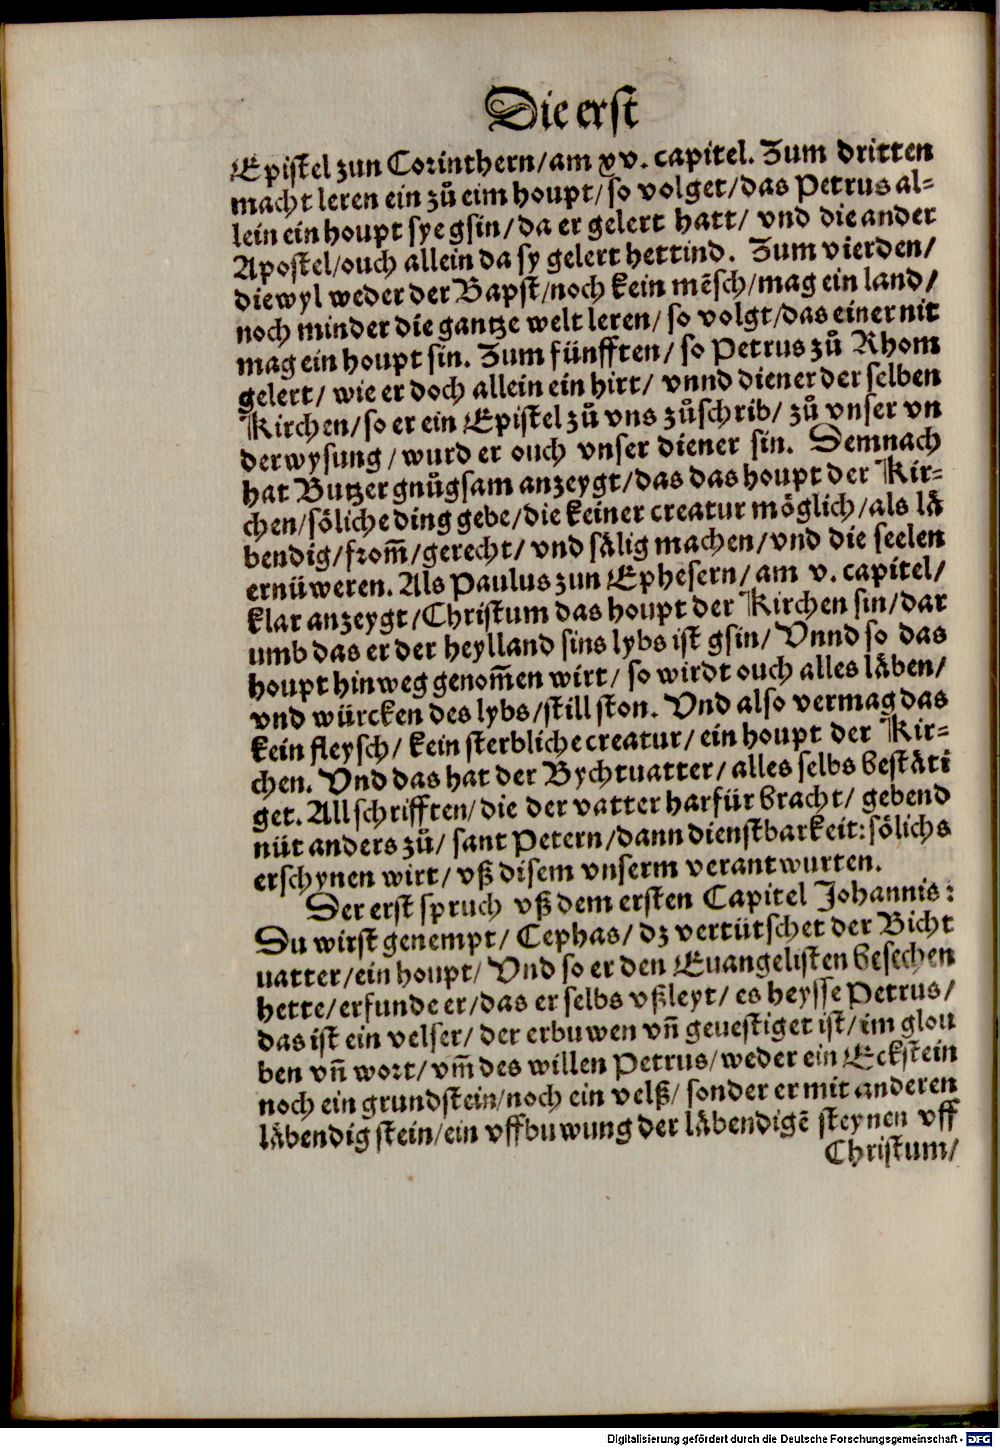 Die erst
Epistel zun Corinthern/am xv. capitel. Zum dritten
macht leren ein zů eim houpt/so volget/das Petrus al-
lein ein houpt sye gsin/da er gelert hatt/ vnd die ander
Apostel/ouch allein da sy gelert hettind. Zum vierden/
diewyl weder der Bapst/noch kein mẽsch/mag ein land/
noch minder die gantze welt leren/ so volgt/das einer nit
mag ein houpt sin. Zum fünfften/ so Petrus zů Rhom
gelert/ wie er doch allein ein hirt/ vnnd diener der selben
Kirchen/so er ein Epistel zů vns zůschrib/ zů vnser vn
derwysung/wurd er ouch vnser diener sin. Demnach
hat Butzer gnůgsam anzeygt/das das houpt der Kir-
chen/söliche ding gebe/die keiner creatur möglich/als lä
bendig/from̃/gerecht/ vnd sälig machen/vnd die seelen
ernüweren. Als Paulus zun Ephesern/am v. capitel/
klar anzeygt/Christum das houpt der Kirchen sin/dar
umb das er der heylland sins lybs ist gsin/ Vnnd so das
houpt hinweg genom̃en wirt/ so wirdt ouch alles läben/
vnd würcken des lybs/still ston. Vnd also vermag das
kein fleysch/ kein sterbliche creatur/ ein houpt der Kir-
chen. Vnd das hat der Bychtuatter/ alles selbs bestäti
get. All schrifften/die der vatter harfür bracht/ gebend
nüt anders zů/ sant Petern/dann dienstbarkeit: sölichs
erschynen wirt/ vß disem vnserm verantwurten.
Der erst spruch vß dem ersten Capitel Johannis:
Du wirst genempt/ Cephas/ dz vertütschet der Bicht
uatter/ein houpt/ Vnd so er den Euangelisten besechen
hette/erfunde er/das er selbs vßleyt/ es heysse Petrus/
das ist ein velser/ der erbuwen vñ geuestiget ist/im glou
ben vñ wort/ vm̃ des willen Petrus/weder ein Eckstein
noch ein grundstein/noch ein velß/ sonder er mit anderen
läbendig stein/ein vffbuwung der läbendigẽ steynen vff
Christum/
Digitalisierung gefördert durch die Deutsche Forschungsgemeinschaft - DFG